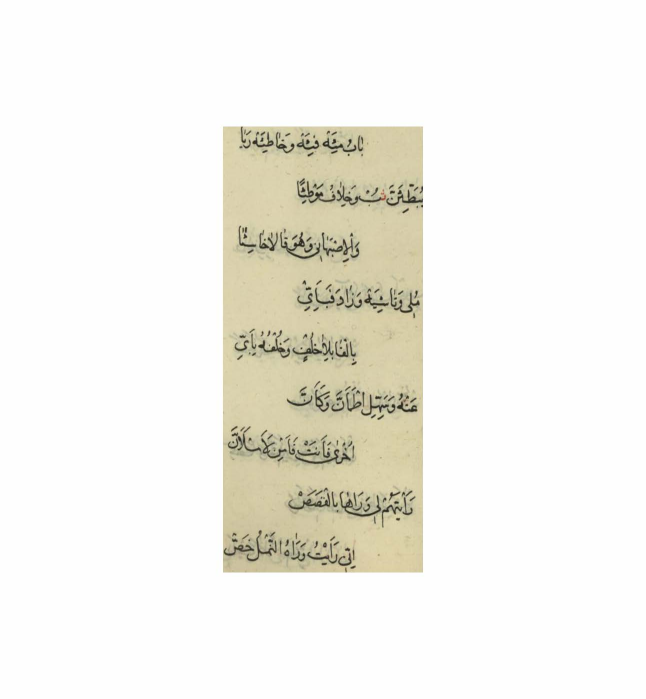 بَابُ مِئَهْ فِئَهْ وَخَاطِئَهْ رِيَا
يُبَطِّئَنَّ ثُبْ وَخِلَافُ مَوْطِيَا
وَالْاِصْبَهَانِي وَهُوَ قَالَا خَاسِيَا
مُلِي وَنَاشِيَهْ وَزَادَ فَبِاَيِّ
بِالْفَا بِلَا خُلْفٍ وَخُلْفُهُ بِاَيِّ
عَنْهُ وَسَهِّلِ اطْمَاَنَّ وَكَاَنَّ
اُخْرَى فَاَنْتَ فَاَمِنْ لَاَمْلَاَنَّ
رَاَيْتَهُمْ لِي وَرَاٰهَا بِالْقَصَصْ
اِنِّي رَاَيْتُ وَرَاٰهُ النَّمْلُ خَصّْ